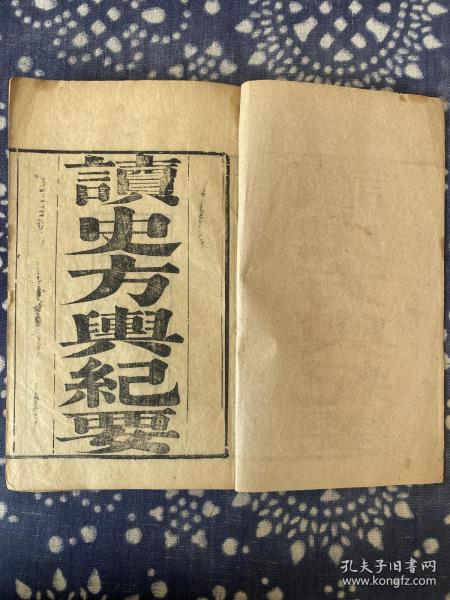 讀史方輿紀要
孔夫子旧书网
www.kongfz.com